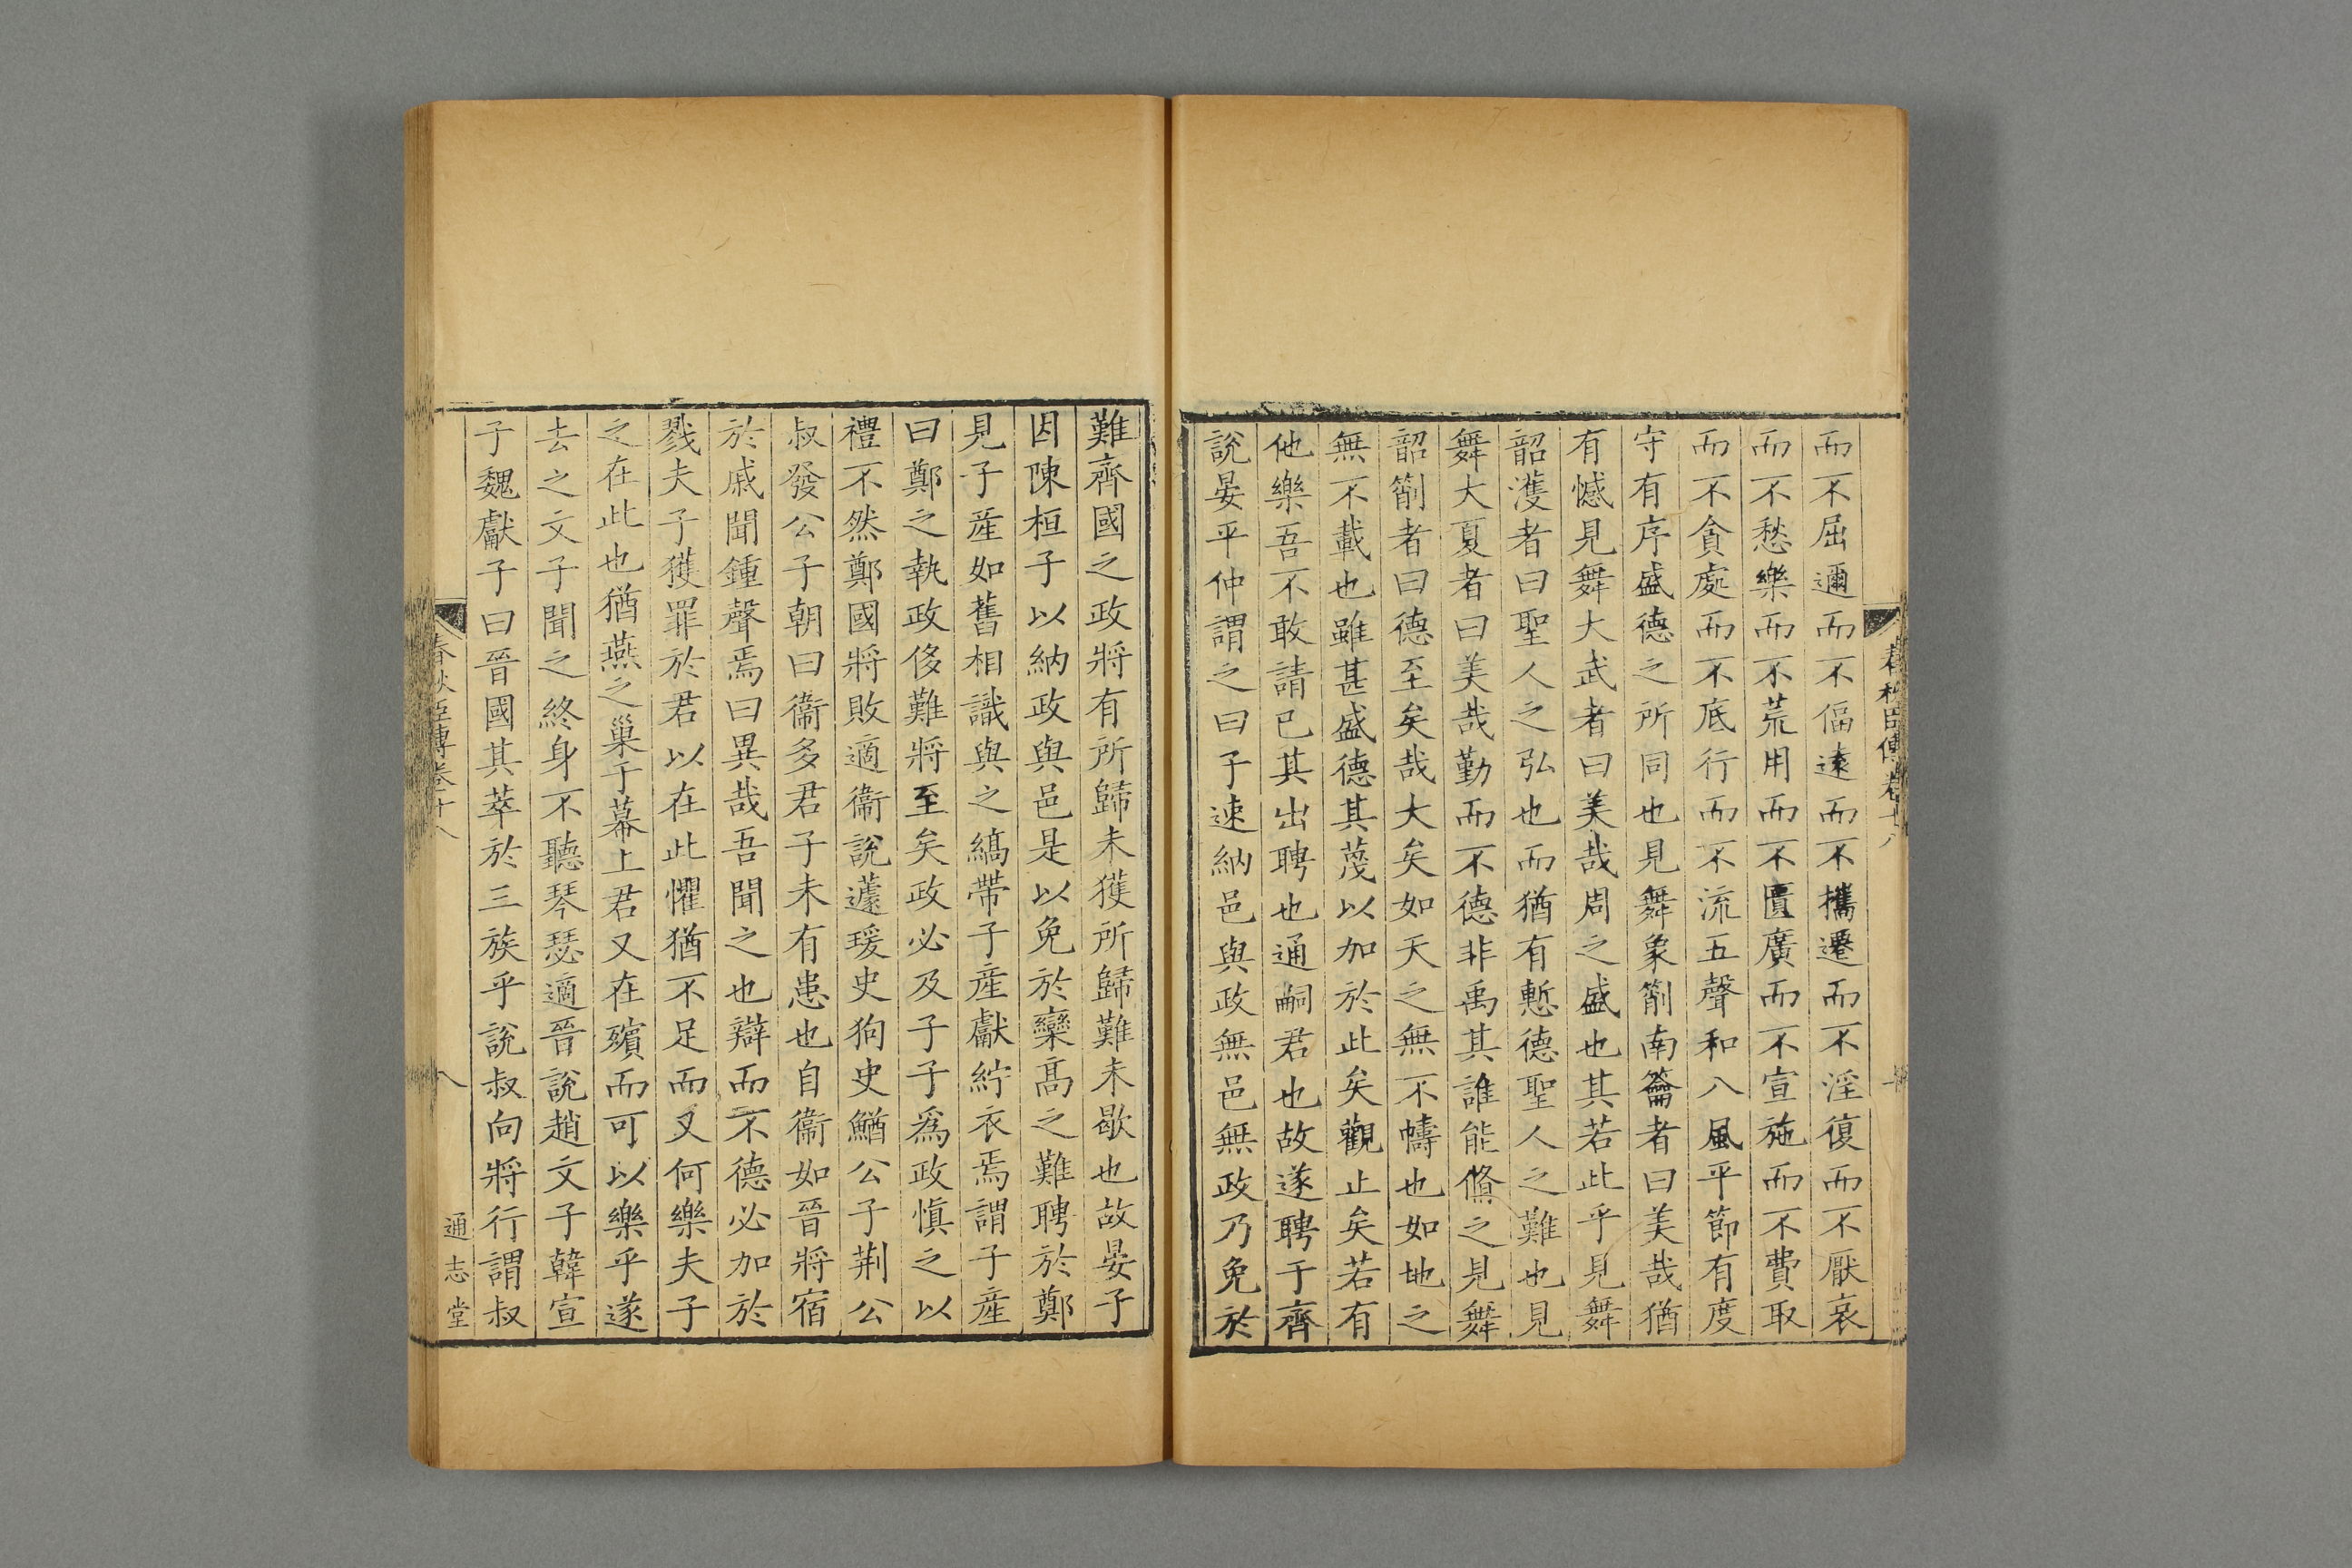 春秋臣傳卷十八
而不屈邇而不偪遠而不攜遷而不淫復而不厭哀
而不愁樂而不荒用而不匱廣而不宣施而不費取
而不貪處而不底行而不流五聲和八風平節有度
守有序盛德之所同也見舞象箾南籥者曰美哉猶
有憾見舞大武者曰美哉周之盛也其若此乎見舞
韶濩者曰聖人之弘也而猶有慙德聖人之難也見
舞大夏者曰美哉勤而不德非禹其誰能脩之見舞
韶箾者曰德至矣哉大矣如天之無不幬也如地之
無不載也雖甚盛德其蔑以加於此矣觀止矣若有
他樂吾不敢請已其出聘也通嗣君也故遂聘于齊
說晏平仲謂之曰子速納邑與政無邑無政乃免於
難齊國之政將有所歸未獲所歸難未歇也故晏子
因陳桓子以納政與邑是以免於欒高之難聘於鄭
見子產如舊相識與之縞帶子產獻紵衣焉謂子產
曰鄭之執政侈難將至矣政必及子子爲政慎之以
禮不然鄭國將敗適衞說蘧瑗史狗史鰌公子荆公
叔發公子朝曰衞多君子未有患也自衞如晉將宿
於戚聞鍾聲焉曰異哉吾聞之也辯而不德必加於
戮夫子獲罪於君以在此懼猶不足而又何樂夫子
之在此也猶燕之巢于幕上君又在殯而可以樂乎遂
去之文子聞之終身不聽琴瑟適晉說趙文子韓宣
子魏獻子曰晉國其萃於三族乎說叔向將行謂叔
春秋臣傳卷十八
八
通志堂